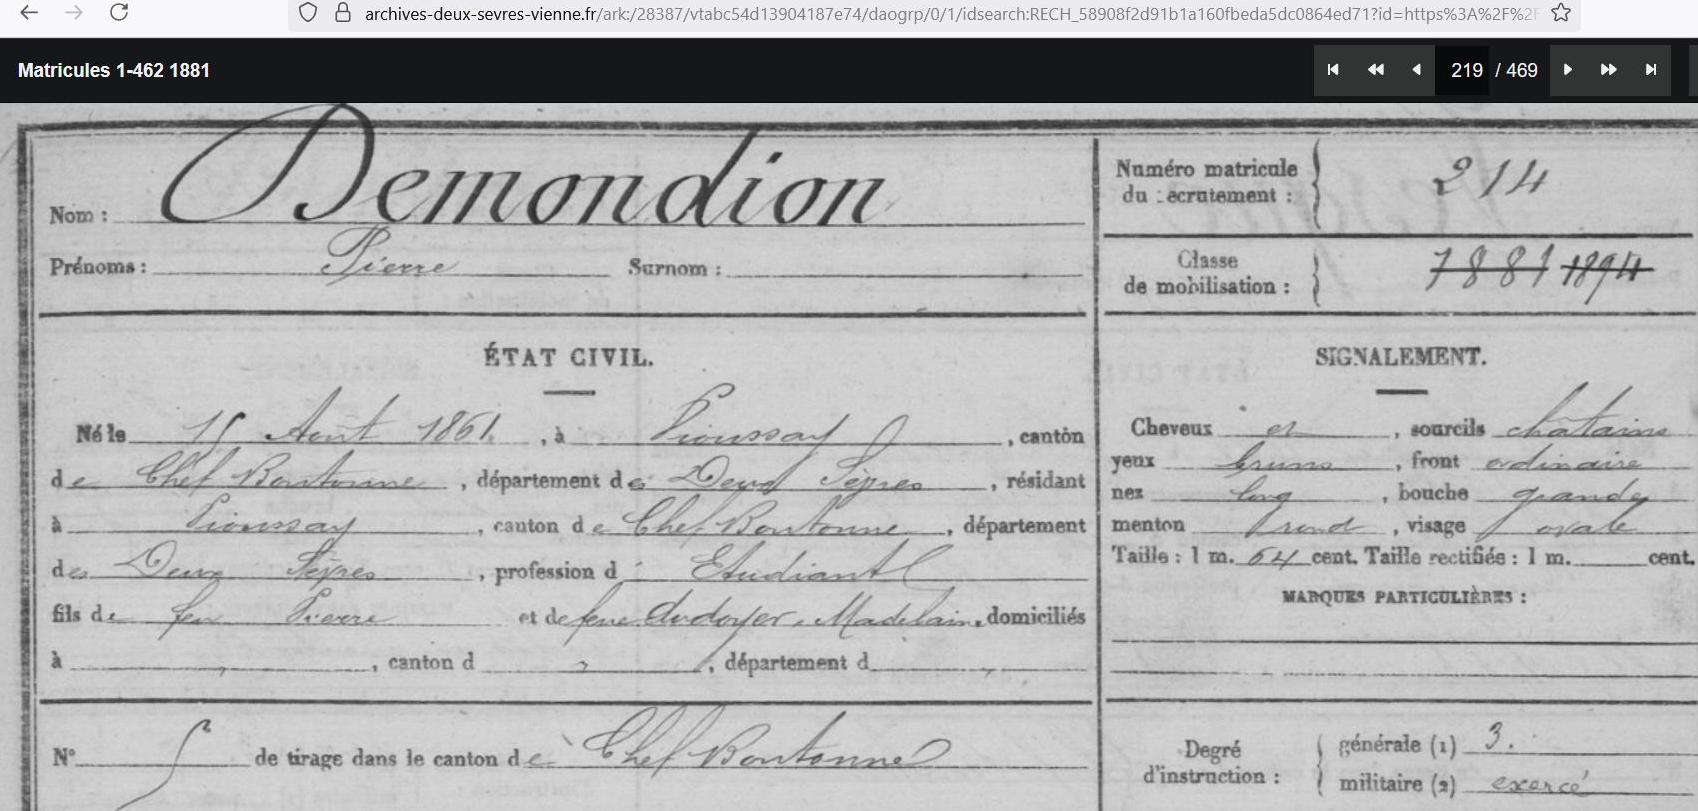 archives-deux-sevres-vienne.fr/ark:/28387/vtabc54d13904187e74/daogrp/0/1/idsearch:RECH_58908f2d91b1a160fbeda5dc0864ed71?id=https%3A%2F%2F
Matricules 1-462 1881
219 / 469
Nom : Demondion
Prénoms : Pierre Surnom :
Numéro matricule du recrutement : 214
Classe de mobilisation : 1881 1894
ÉTAT CIVIL.
Né le 15 Août 1861, à Pioussay, canton
de Chef Boutonne, département des Deux Sèvres, résidant
à Pioussay, canton de Chef Boutonne, département
des Deux Sèvres, profession d' Etudiant
fils de feu Pierre et de feue Audoyer, Madelaine, domiciliés
à , canton d , département d
N° 5 de tirage dans le canton de Chef Boutonne
SIGNALEMENT.
Cheveux et, sourcils châtains
yeux bruns, front ordinaire
nez long, bouche grande
menton rond, visage ovale
Taille : 1 m. 64 cent. Taille rectifiée : 1 m. cent.
MARQUES PARTICULIÈRES :
Degré d'instruction : générale (1) 3.
militaire (2) exercé